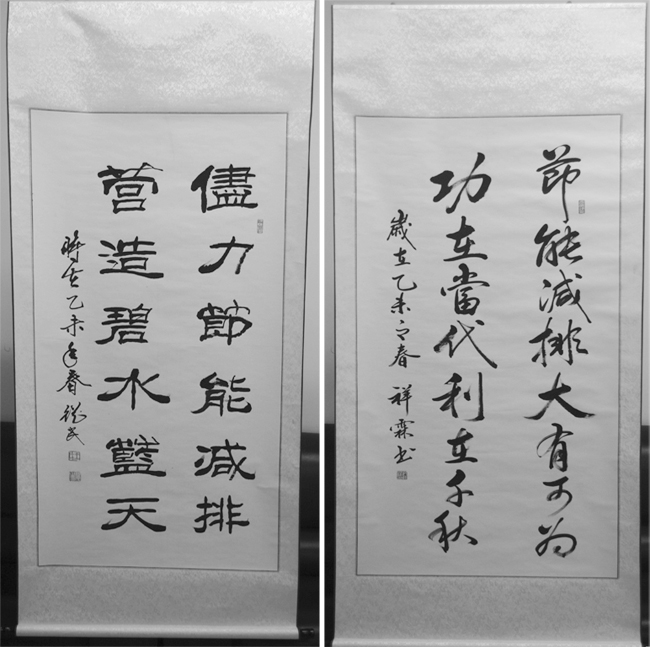 儘力節能減排
營造碧水藍天
時在乙未年春
節能減排大有可為
功在當代利在千秋
歲在乙未之春祥霖书